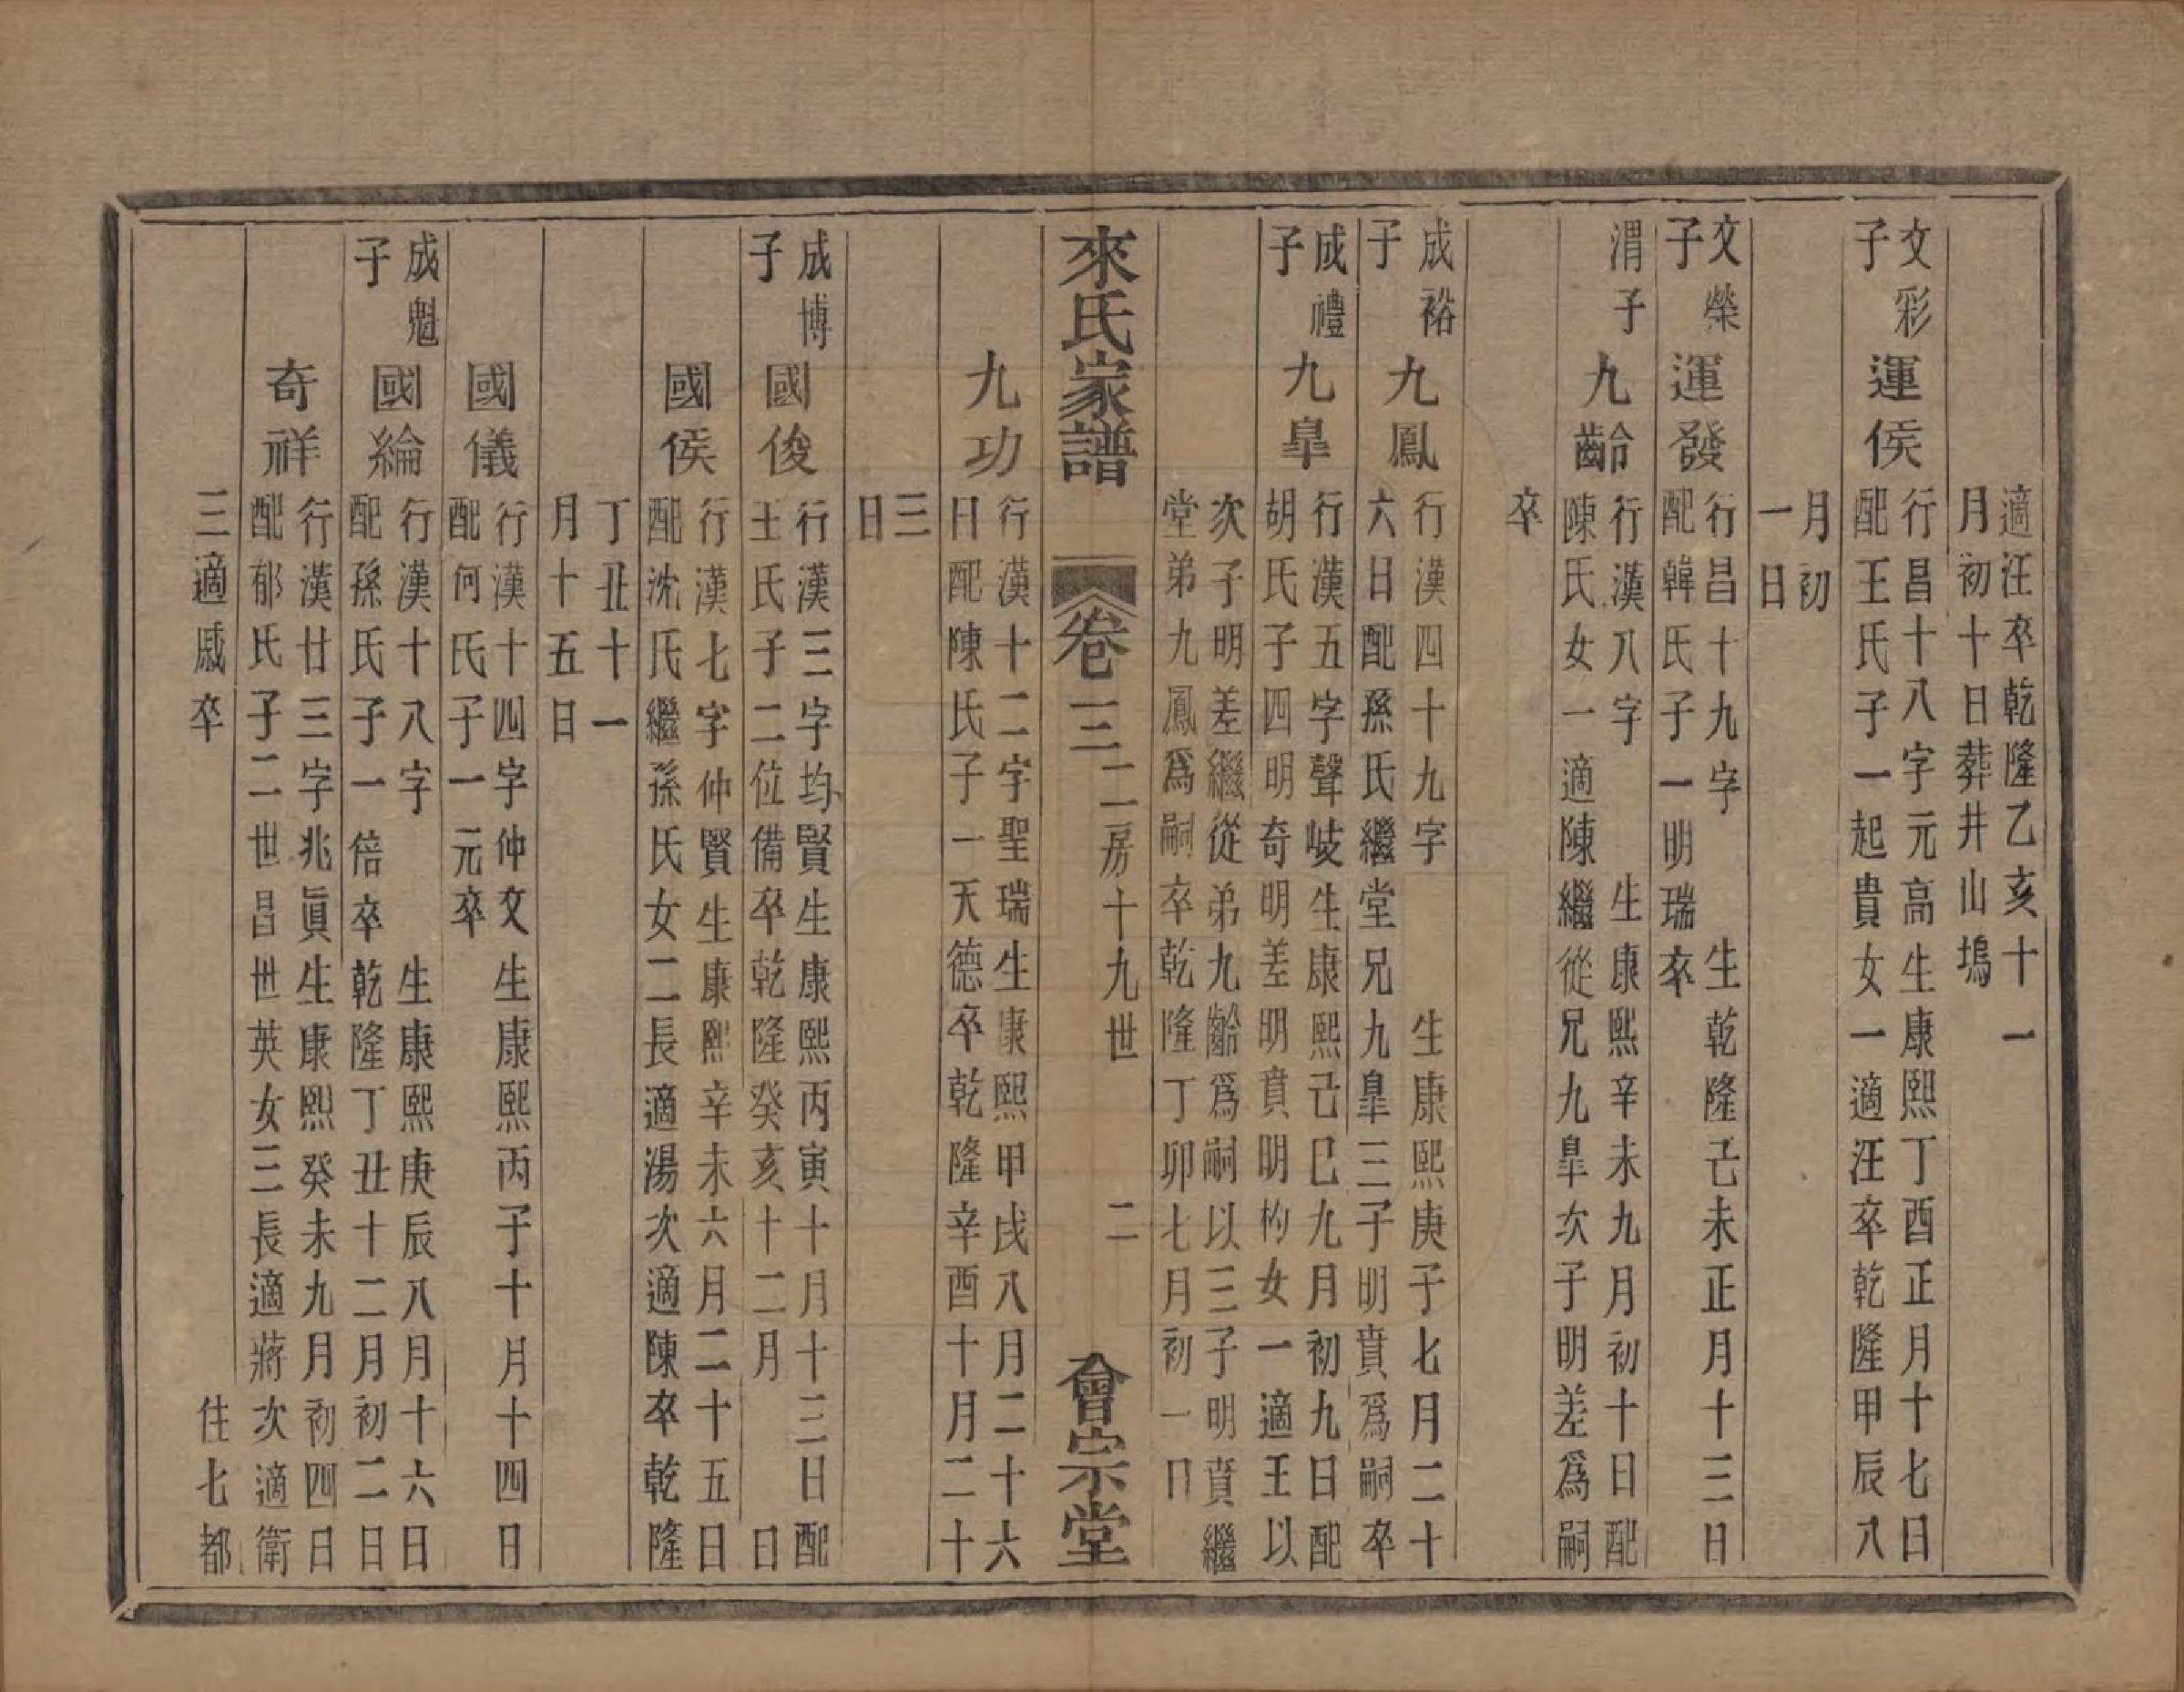 適汪卒乾隆乙亥十一
月初十日葬井山塢
文彩子
運侯
行昌十八字元高生康熙丁酉正月十七日
配王氏子一起貴女一適汪卒乾隆甲辰八
月初
一日
文榮子
運發
行昌十九字　生乾隆己未正月十三日
配韓氏子一明瑞卒
渭子
九齡
行漢八字　生康熙辛未九月初十日配
陳氏女一適陳繼從兄九臯次子明差爲嗣
卒
成裕子
九鳳
行漢四十九字　生康熙庚子七月二十
六日配孫氏繼堂兄九臯三子明賁爲嗣卒
成禮子
九臯
行漢五字聲岐生康熙己巳九月初九日配
胡氏子四明奇明差明賁明杓女一適王以
次子明差繼從弟九齡爲嗣以三子明賁繼
堂弟九鳳爲嗣卒乾隆丁卯七月初一日
來氏家譜　卷三　二房十九世　二　會宗堂
九功
行漢十二字聖瑞生康熙甲戌八月二十六
日配陳氏子一天德卒乾隆辛酉十月二十
三
日
成博子
國俊
行漢三字均賢生康熙丙寅十月十三日配
王氏子二位備卒乾隆癸亥十二月　日
國侯
行漢七字仲賢生康熙辛未六月二十五日
配沈氏繼孫氏女二長適湯次適陳卒乾隆
丁丑十一
月十五日
國儀
行漢十四字仲文生康熙丙子十月十四日
配何氏子一元卒
成魁子
國綸
行漢十八字　生康熙庚辰八月十六日
配孫氏子一倍卒乾隆丁丑十二月初二日
奇祥
行漢廿三字兆眞生康熙癸未九月初四日
配郁氏子二世昌世英女三長適蔣次適衛
三適戚卒　住七都